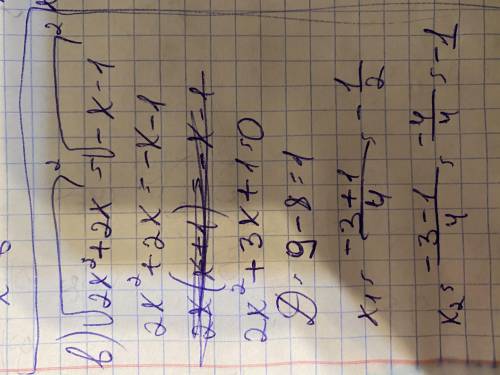 в) √2x²+2x² = √-x-1²
2x²+2x = -x-1
2x(x+1) = -x-1
2x²+3x+1=0
D = 9-8=1
x₁ = -3+1/4 = -1/2
x₂ = -3-1/4 = -4/4 = -1